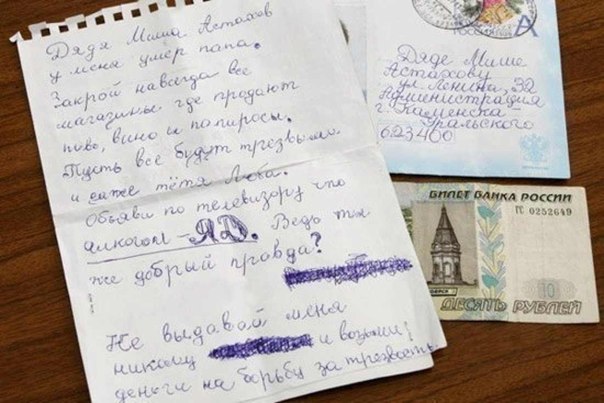 Дядя Миша Астахов
у меня умер папа.
Закрой навсегда все
магазины где продают
пиво, вино и папиросы.
Пусть все будут трезвыми
и даже тётя Люба.
Объяви по телевизору что
алкоголь – ЯД. Ведь ты
же добрый правда?
Не выдавай меня
никому и возьми
деньги на борьбу за трезвость
РОССИЯ А
Дяде Мише
Астахову
ул. Ленина, 32
Администрация
г. Каменска
Уральского
623400
БИЛЕТ БАНКА РОССИИ
ГС 0252649
10
ДЕСЯТЬ РУБЛЕЙ